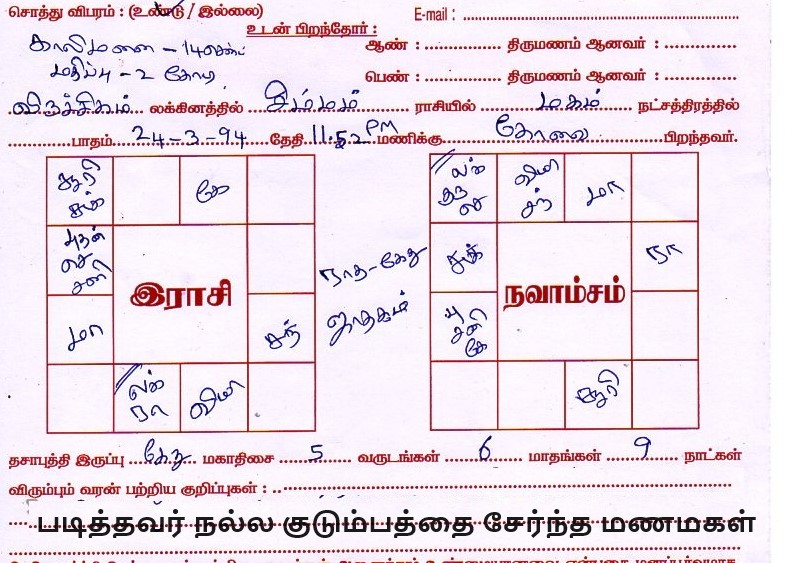 சொத்து விபரம் : (உண்டு / இல்லை)
E-mail :
உடன் பிறந்தோர் :
காலிமனை - 14 செண்ட்
ஆண் : திருமணம் ஆனவர் :
மதிப்பு - 2 கோடி
பெண் : திருமணம் ஆனவர் :
விருச்சிகம் லக்கினத்தில் சிம்மம் ராசியில் மகம் நட்சத்திரத்தில்
பாதம் 24-3-94 தேதி 11:52 PM மணிக்கு கோவை பிறந்தவர்.
சூரி சுக்
கே
புதன் செ சனி
மா
சந்
லக் ரா
வியா
இராசி
லக்
சந்
மா
சுக்
ரா
சனி கே
சூரி
நவாம்சம்
ராகு-கேது
ஜாதகம்
தசாபுத்தி இருப்பு கேது மகாதிசை 5 வருடங்கள் 6 மாதங்கள் 9 நாட்கள்
விரும்பும் வரன் பற்றிய குறிப்புகள் :
படித்தவர் நல்ல குடும்பத்தை சேர்ந்த மணமகள்